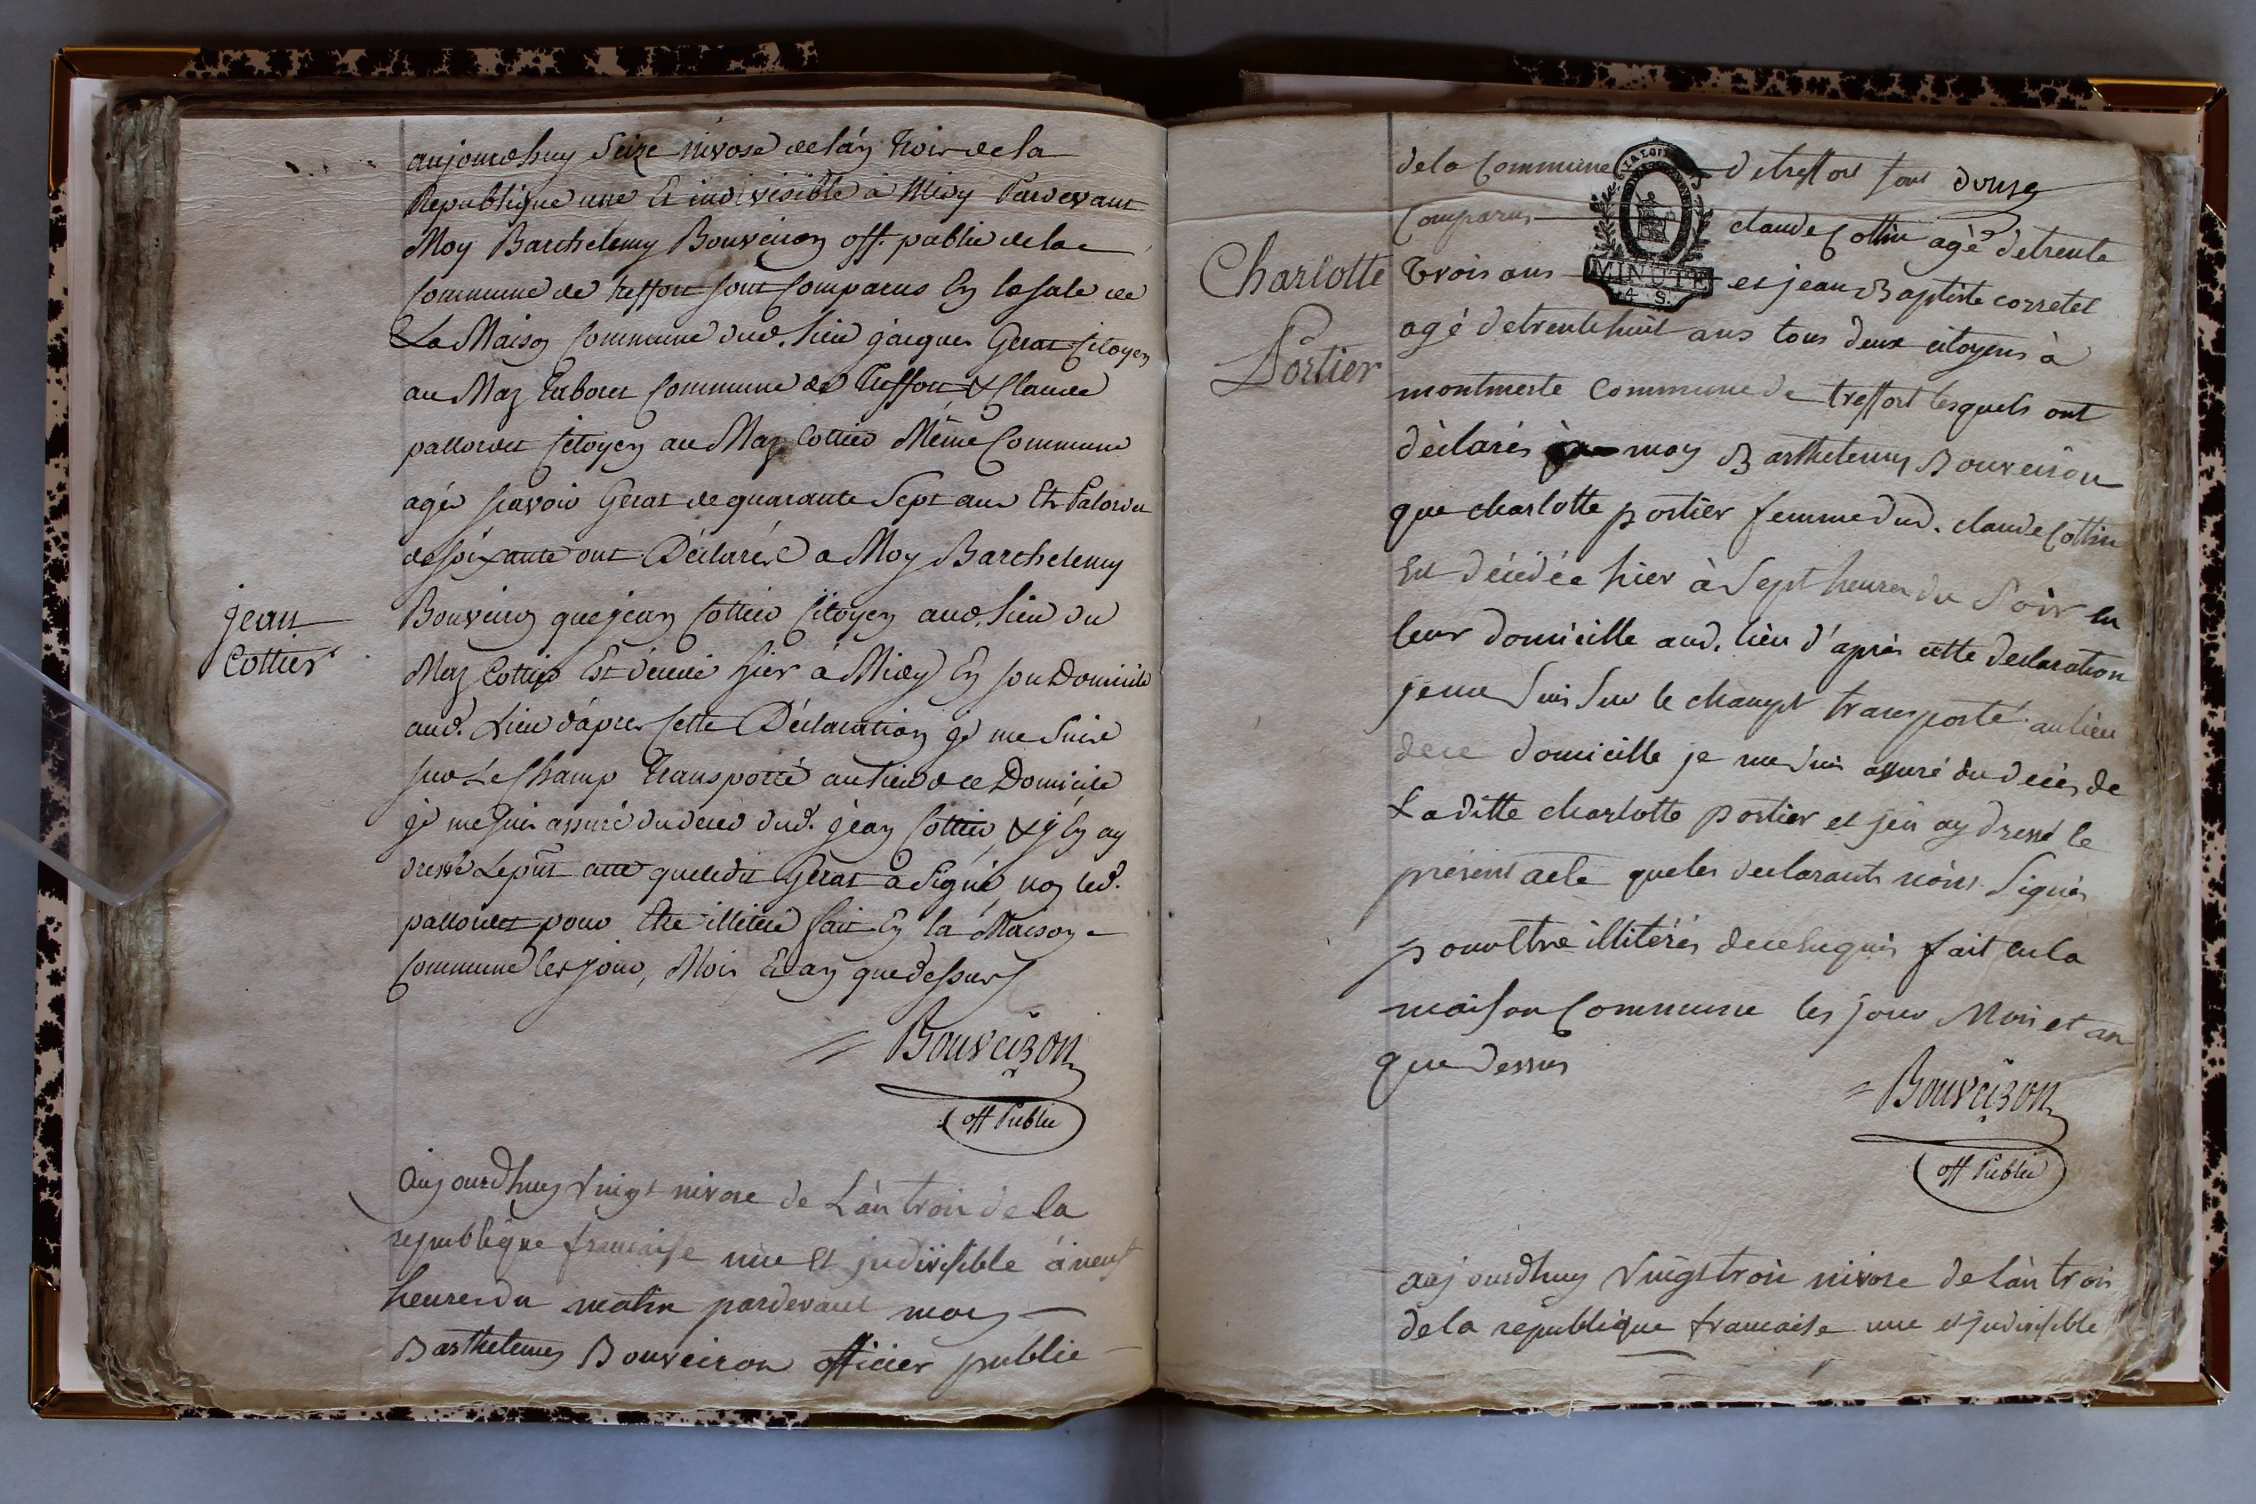 aujourdhuy Seize nivose de lán trois de la
Republique une Et indivisible à Midy Pardevant
Moy Barthelemy Bouveiron off. public de la
Commune de treffort sont Comparus En la sale de
La Maison Commune dud. lieu jàcques Gerat Citoyen
au Maz Commune de Treffort & Claude
pallordet Citoyen au Maz Cottier Même Commune
agés scavoir Gerat de quarante Sept ans Et Palordet
de soixante ont Déclarés a Moy Barthelemy
Bouveiron que jean Cottier Citoyen aud. lieu du
jean
Cottier
Maz Cottier Est décédé hier à Midy En son Domicile
aud. Lieu dápres Cette Déclaration jé me Suis
sur Le Champ Transporté au lieu de ce Domicile
jé me suis assuré du décés dud. jéan Cottier, & j'én ay
dressé Le pnt acte que ledit Gerat à Signé, non led.
pallordet pour Etre illiteré fait En la Maison
Commune les jour, Mois Et an que dessus
= Bouveiron
off Public
aujourdhuy vingt nivose de L'àn trois de la
republique francaise une Et jndivisible à neuf
heures du matin pardevant moy
Barthelemy Bouveiron officier public
de la Commune de treffort sont
LA LOI
MINUTE
4 S.
Comparus claude Cottin agé de trente
Charlotte
Portier
trois ans et jean Baptiste corretet
agé de trente huit ans tous deux citoyens à
montmerle Commune de treffort lesquels ont
déclarés moy Barthelemy Bouveiron
que charlotte portier femme dud. claude Cottin
Est décédée hier à Sept heures du Soir en
leur domicille aud. lieu d'aprés cette declaration
je me suis sur le champt transporté au lieu
de ce domicille je me suis assuré du décés de
La ditte charlotte portier et j'en ay dressé le
présent acte que les declarants n'ont Signés
pour Etre illitérés de ce Enquis fait en la
maison Commune les jour Mois et an
que dessus
= Bouveiron
off Public
aujourdhuy vingt trois nivose de L'àn trois
de la republique francaise une et jndivisible